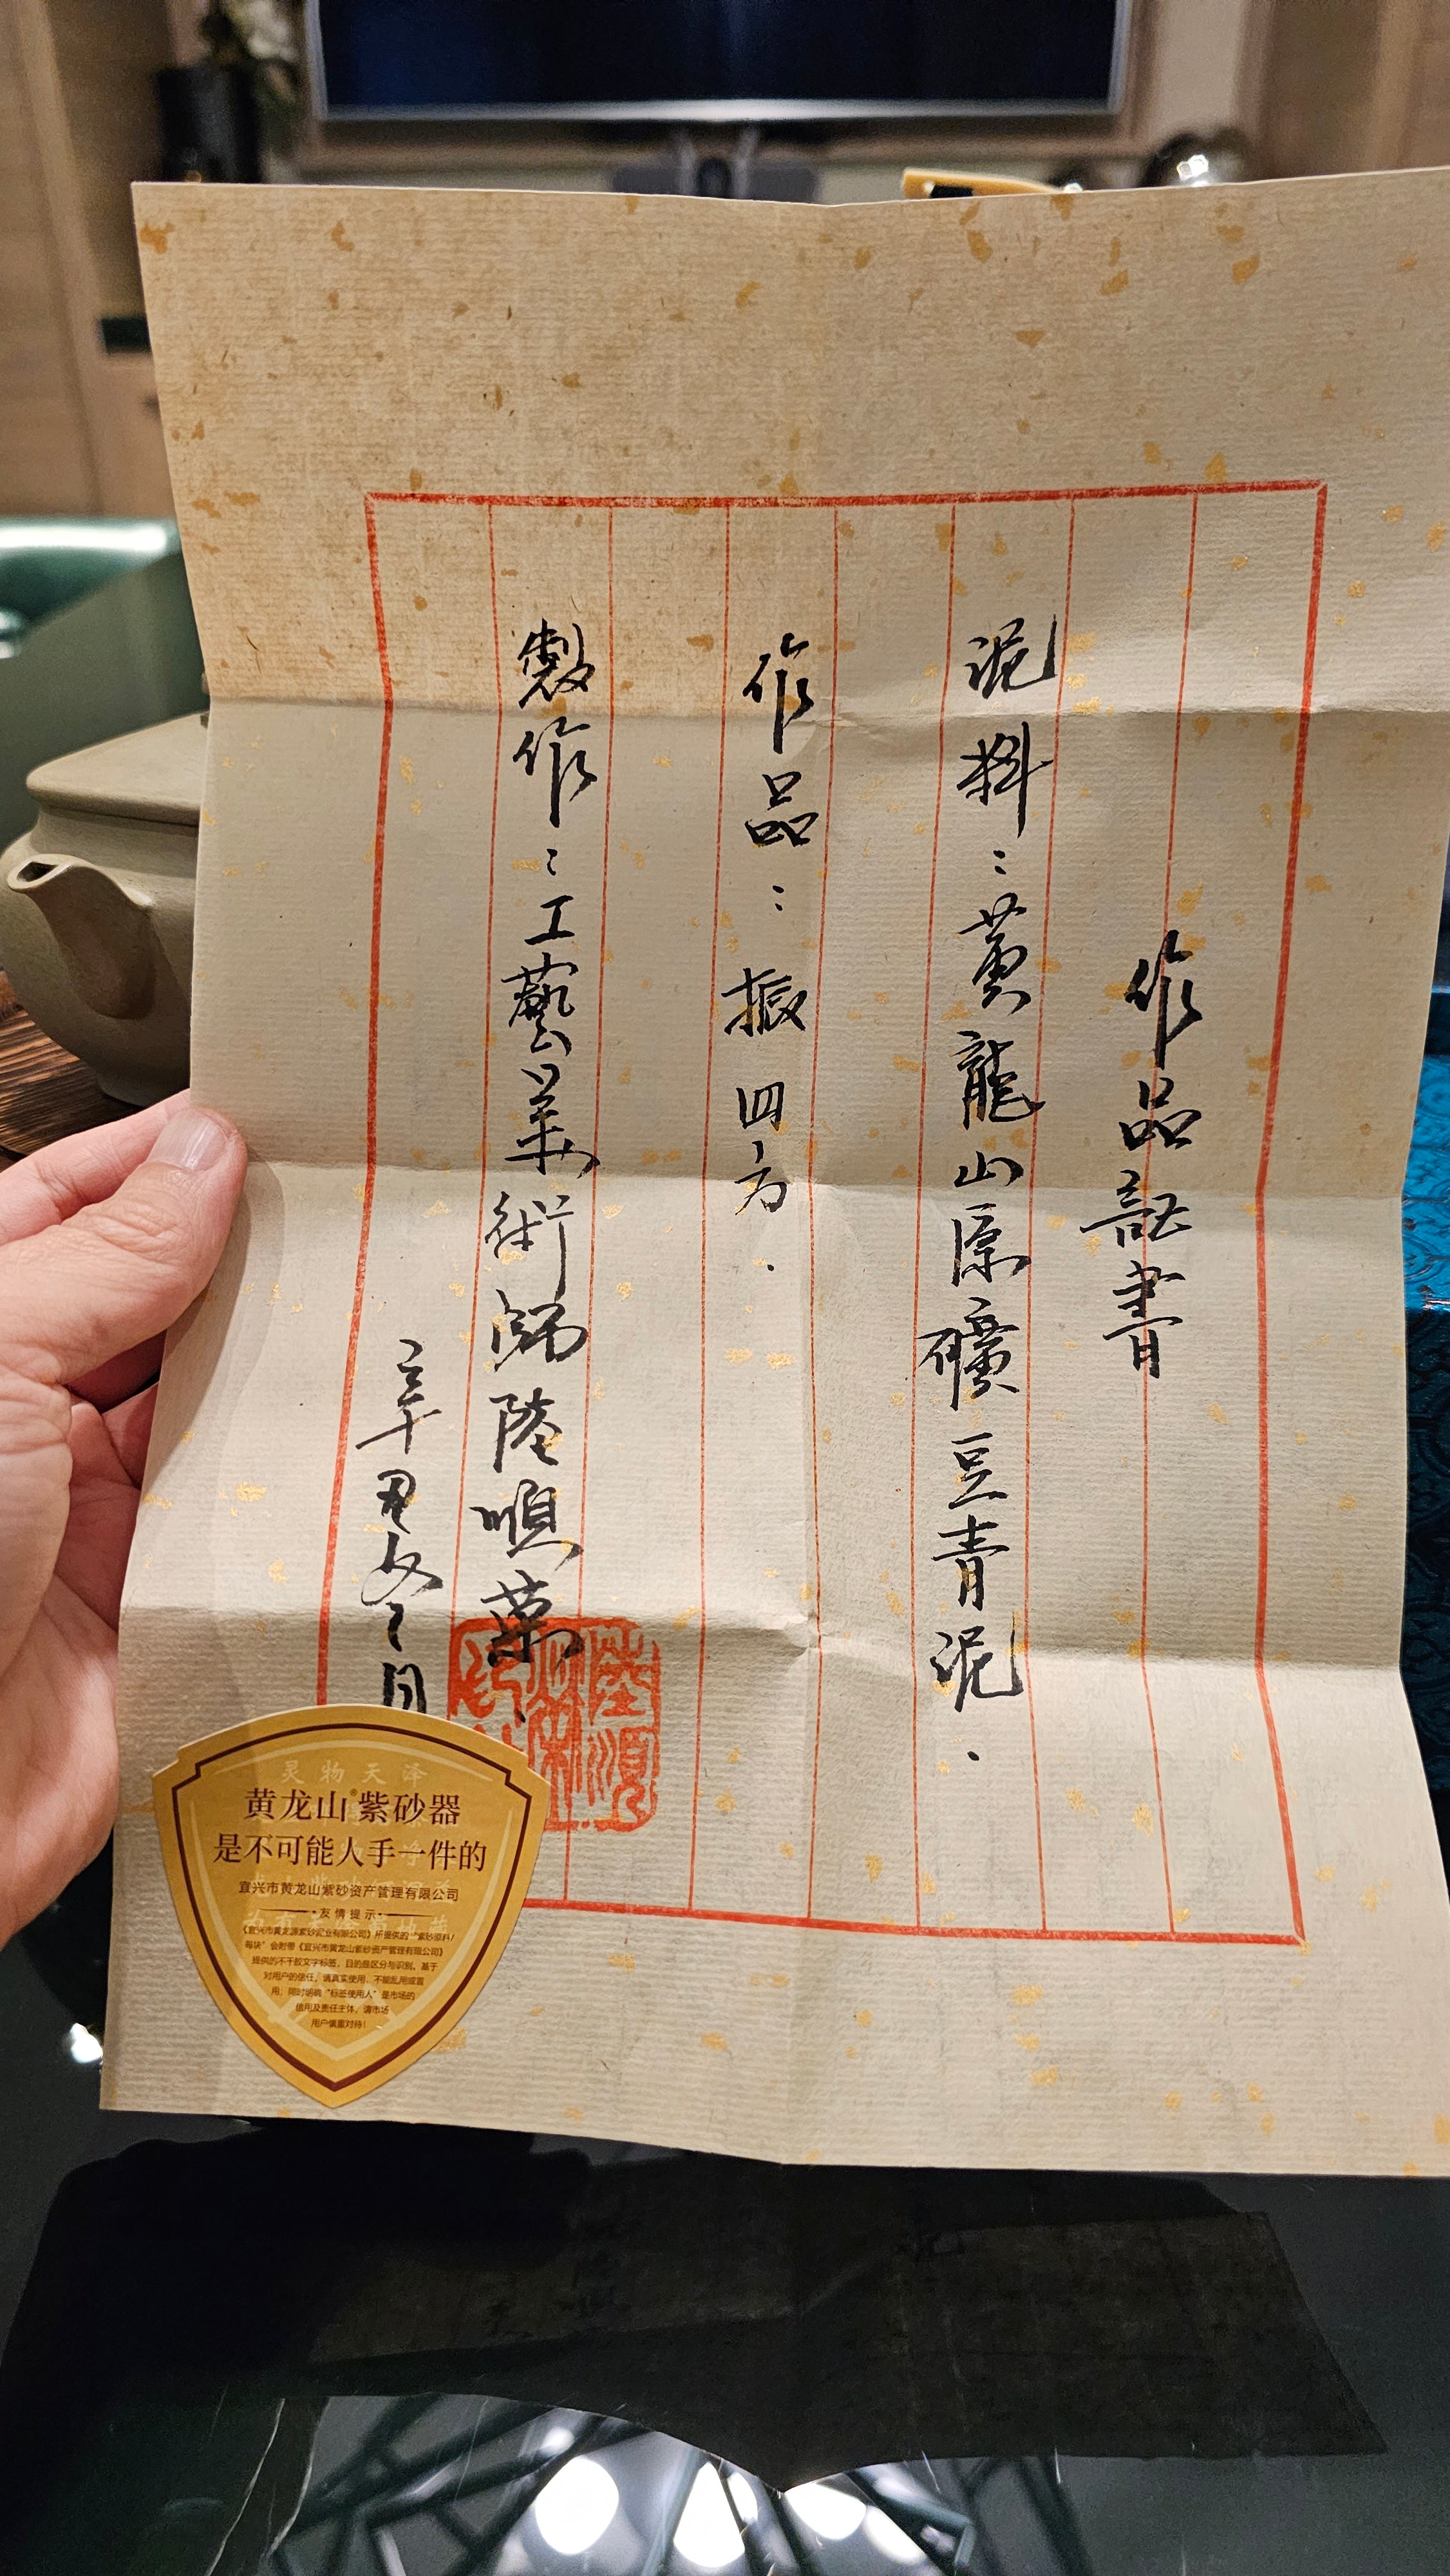 作品証書
泥料：黄龍山原礦豆青泥．
作品：振四方．
製作：工藝美術師陸順
冬月
陸順
灵物天泽
黄龙山®紫砂器
是不可能人手一件的
宜兴市黄龙山紫砂资产管理有限公司
·友情提示·
《宜兴市黄龙源紫砂泥业有限公司》所提供的“紫砂原料/
每块”会附带《宜兴市黄龙山紫砂资产管理有限公司》
提供的不干胶文字标签，目的是区分与识别。基于
对用户的信任，请真实使用，不能乱用或冒
用，同时明确“标签使用人”是市场的
信用及责任主体，请市场
用户慎重对待！